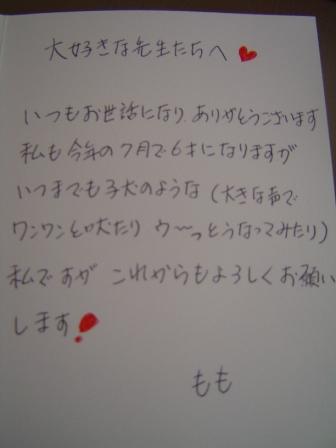 大好きな先生たちへ♥
いつもお世話になり、ありがとうございます
私も今年の7月で6才になりますが
いつまでも子犬のような（大きな声で
ワンワンと吠たり ウ〜っとうなってみたり）
私ですが これからもよろしくお願い
します!
もも